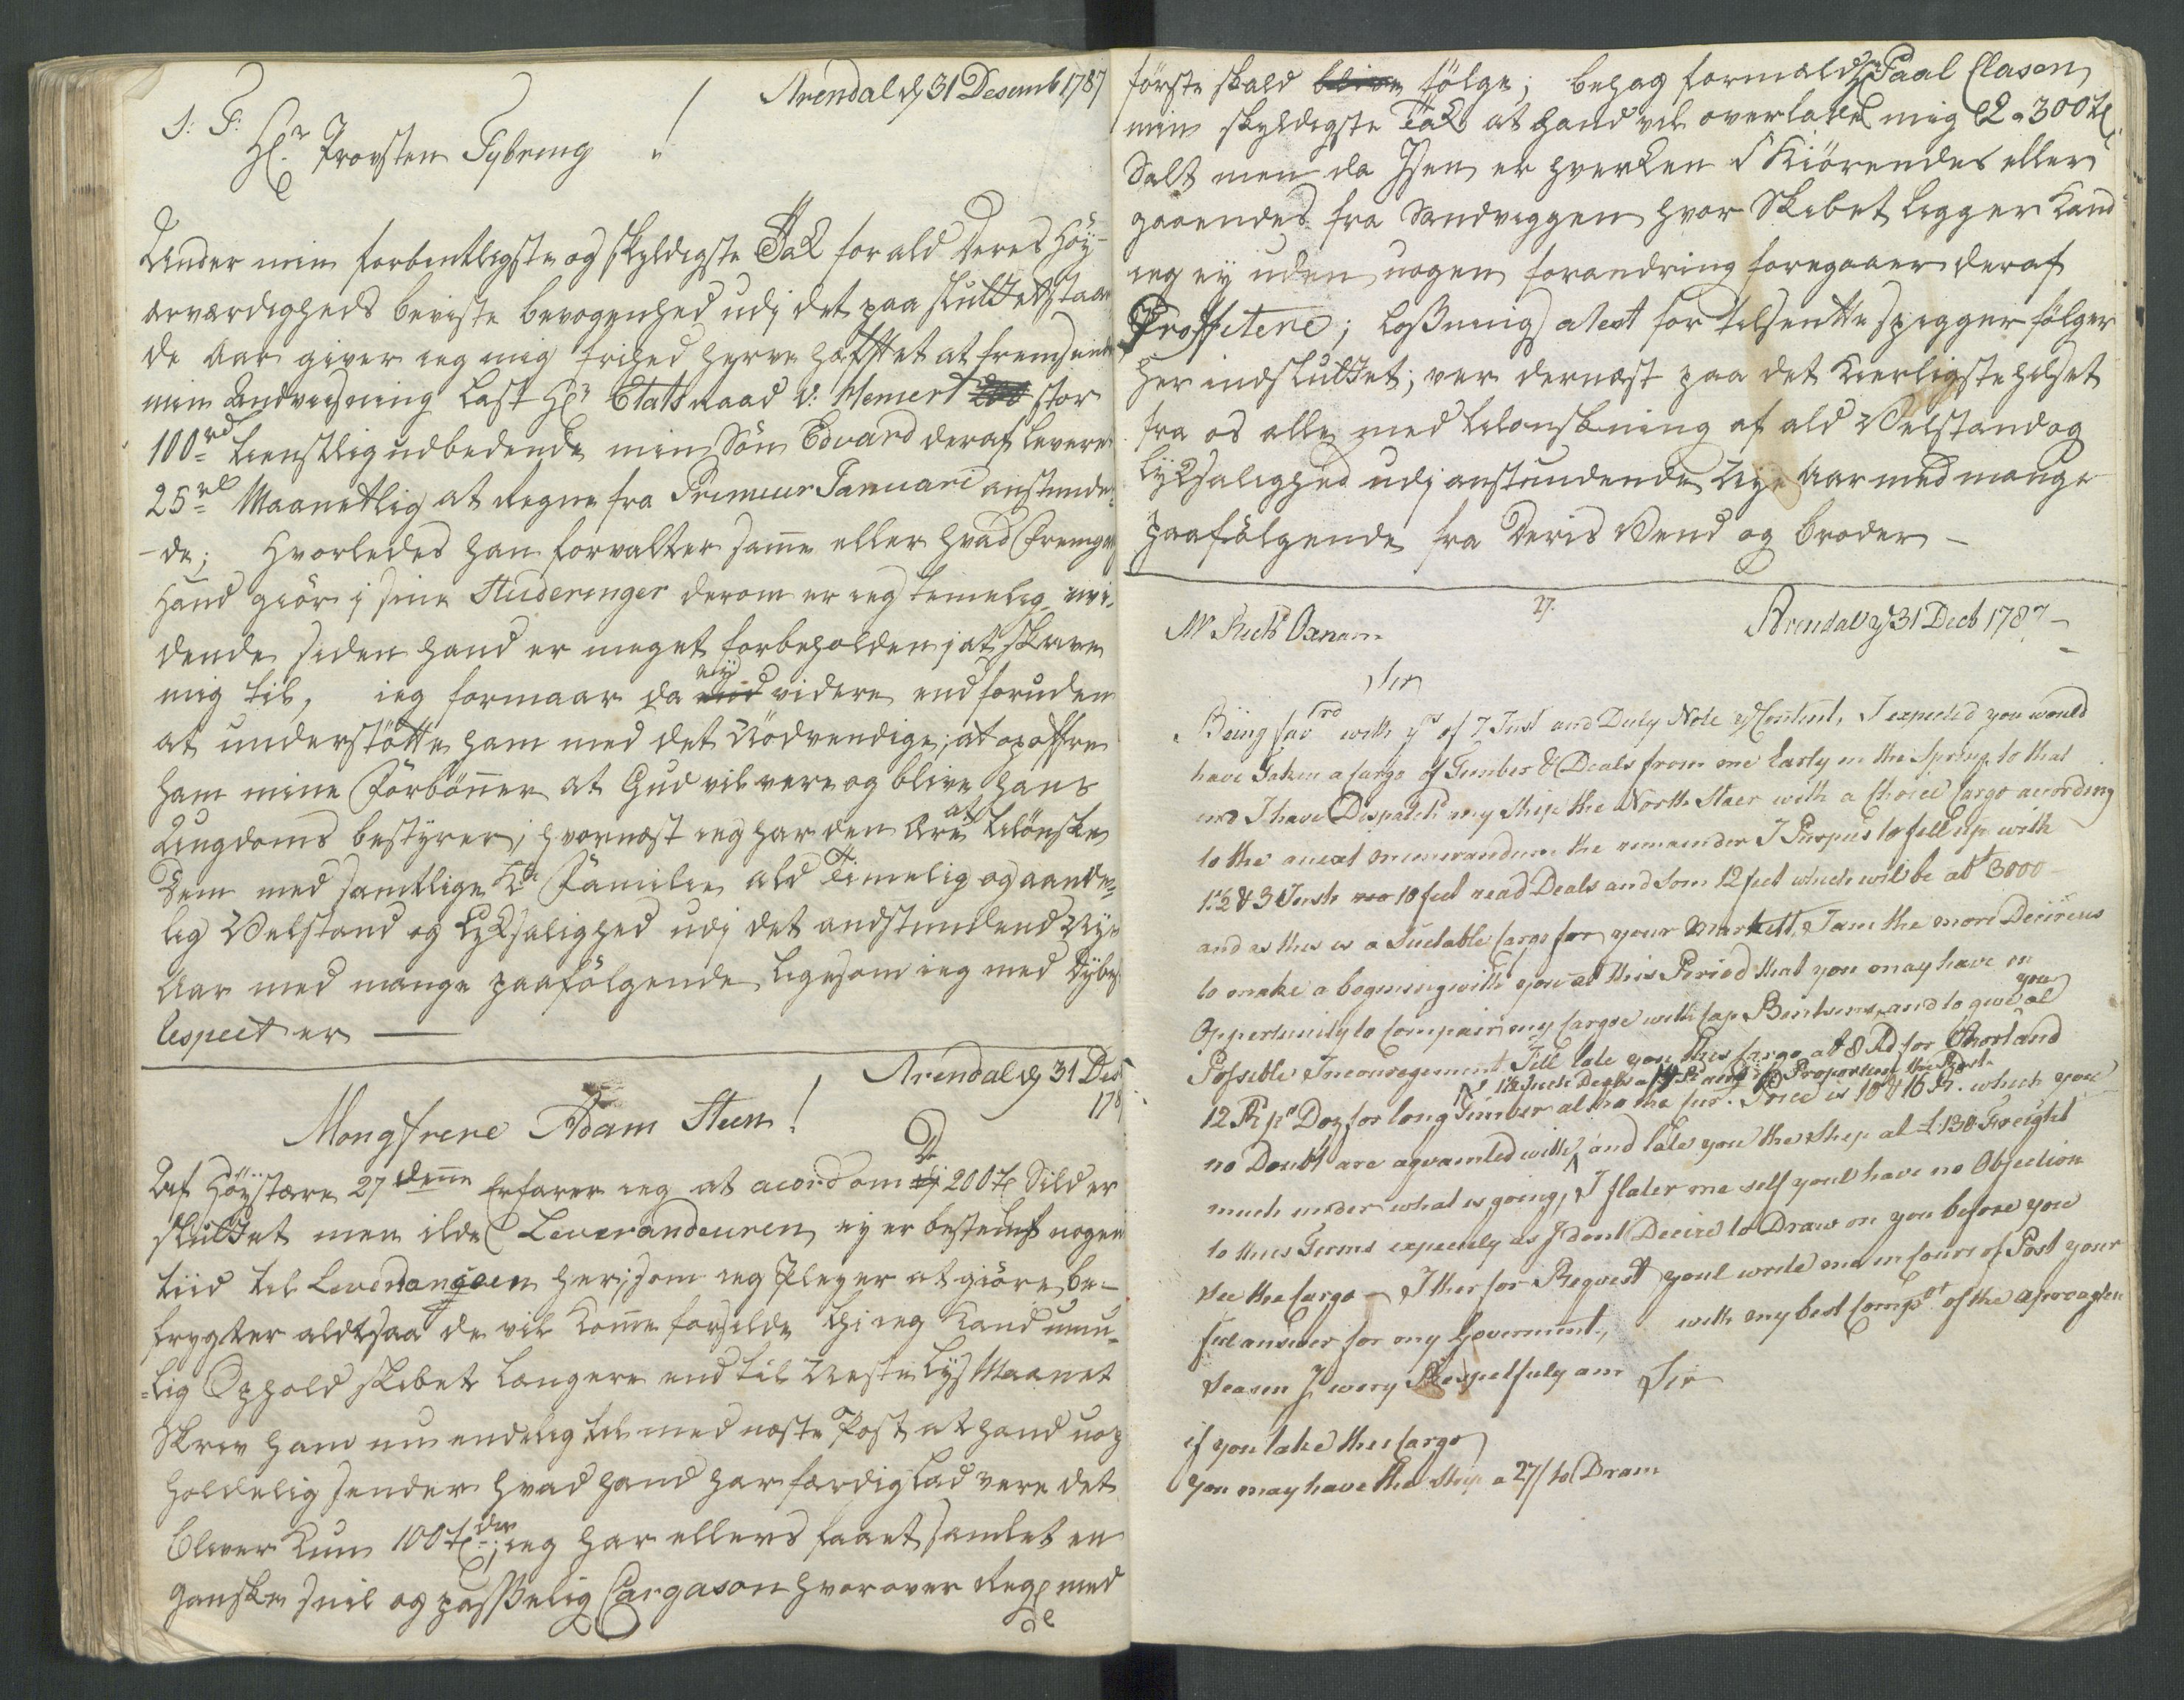 Arendal d 31 Desemb 1787
S: T:
Hr. Provsten Tybring !
Under min forbentligste og skyldigste Tak for ald Deres Höy-
ærværdigheds beviste bevogenhed udj det paa sluttetstaaen
de Aar giver ieg mig frihed herve hæfftet at fremsende
min Andvisning Last Hr Etatsraad v: Hemert stor
100rd tienstlig udbedende min Sön Edvard deraf levere
25rd Maanetlig at Regne fra Primeur Januari anstunden-
-de; Hvorledes han forvalter samme eller hvad fremgang
Hand giör i sine Studeringer derom er ieg temelig uvi-
dende siden hand er meget forbeholden i at skrive
mig til, ieg formaar da ey videre end foruden
at understötte ham med det Nödvendige; at opoffre
ham mine Forbönner at Gud vil vere og blive hans
Ungdoms bestyrer; hvornæst ieg har den Ære at tilönske
Dem med samtlige Kre Familie ald Timelig og aande-
lig Velstand og Lyksalighed udj det andstundend Nye
Aar med mange paafölgende ligesom ieg med Dybest
Respect er —
Arendal d 31 Des
178
Monsfrere Adam Steen!
Af Höystærn 27 denne Erfarer ieg at acord om 200 t Sild er
sluttet men ilde Leverandeuren ey er bestembt nogen
tiid til Leverangsen her; som ieg Pleyer at giöre, be-
frygter altsaa de vil komme forsilde thi ieg kand umu-
-lig Ophold skibet Længere end til Neste Lys Maanet
Skriv ham nu endelig til med næste Post at hand uop-
holdelig sender hvad hand har færdig lad vere det
bliver kun 100 t der; ieg har ellers faaet samlet en
Ganske snil og passelig Cargason hvorover Regg med
de
förste skald fölge; behag formeld Hr Paal Clasen
min skyldigste Tak at hand vil overlatte mig 2 a 300 t
Salt men da Isen er hverken Kiörendes eller
gaaendes fra Sandviggen hvor Skibet ligger kand
ieg ey uden nogen forandring foregaaer deraf
Proffitere; Losnings atest for tilsentte spegger fölger
her indsluttet; ver dernæst paa det Kierligste hilset
fra os alle med tilönskning af ald Velstand og
Lyksalighed udj anstundende Nye Aar med mange
paafölgende fra Deris Vend og broder –
27.
Arendal d 31 Decb 1787 –
Mr Richd Oxnam
Sir
Being favrd with yrs of 7 Inst and Duly Note ye Content, I expected you would
have Taken a Cargo of Timber & Deals from me Early in the Spring to that
end I have Dispatch my Ship the North Staer with a Choice Cargo acording
to the anext memorandum the remainder I Purpus to fill up with
1½ & 3 Insh 10 feet read Deals and Som 12 feet which wil be abt 3000
and as this is a Suetable Cargo for your Markett, I am the more Decireus
to make a begining with you at this Period that you may have en
Oppertunity to Compair my Cargoe with Cap Bentsens, and to give you al
Possible Incouregement I'll late you this Cargo at 8 Rd for Short and
12 R pr Doz for long Timber altho the cur. Price is 10 & 16 R. which you
1½ Insh Deals a 19 R and in Proportion the Rest
no Doubt are aqvainted with, and late you the Ship at £ 130 Freight
much under what is going, I flater me self youl have no Objection
to thees Terms expecialy as I dont Decire to Draw on you before you
see the Cargo – I ther for Reqvest youl write me in Cours of Post your
ful answer for my Goverment, with my best Compts of the aproagten
Season I wery Respectfuly am Sir
if you take thes Cargo
you may have the Ship a 27/ to Dram